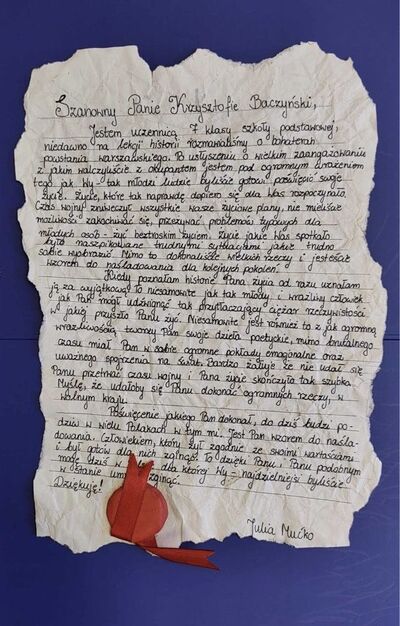 Szanowny Panie Krzysztofie Baczyński,
Jestem uczennicą 7 klasy szkoły podstawowej,
niedawno na lekcji historii rozmawialiśmy o bohaterach
powstania warszawskiego. Po usłyszeniu o wielkim zaangażowaniu
z jakim walczyliście z okupantem jestem pod ogromnym wrażeniem
tego jak Wy - tak młodzi ludzie byliście gotowi poświęcić swoje
życie. Życie, które tak naprawdę dopiero się dla Was rozpoczynało.
Czas wojny zniweczył wszystkie wasze życiowe plany, nie mieliście
możliwości zakochiwać się, przeżywać problemów typowych dla
młodych osób - żyć beztroskim życiem. Życie jakie Was spotkało
było naszpikowane trudnymi sytuacjami jakie trudno
sobie wyobrazić. Mimo to dokonaliście wielkich rzeczy i jesteście
wzorem do naśladowania dla kolejnych pokoleń.
Kiedy poznałam historię Pana życia od razu uznałam
ją za wyjątkową. To niesamowite jak tak młody i wrażliwy człowiek
jak Pan mógł udźwignąć tak przytłaczający ciężar rzeczywistości
w jakiej przyszło Panu żyć. Niesamowite jest również to z jak ogromną
wrażliwością tworzył Pan swoje dzieła poetyckie, mimo brutalnego
czasu miał Pan w sobie ogromne pokłady emocjonalne oraz
uważnego spojrzenia na świat. Bardzo żałuję że nie udał się
Panu przetrwać czasu wojny i Pana życie skończyło tak szybko.
Myślę, że udałoby się Panu dokonać ogromnych rzeczy, w
wolnym kraju.
Poświęcenie jakiego Pan dokonał, do dziś budzi po-
dziw w wielu Polakach w tym mi. Jest Pan wzorem do naśla-
dowania. Człowiekiem, który żył zgodnie ze swoimi wartościami
i był gotów dla nich zginąć. To dzięki Panu, Panu podobnym
mogę dziś w dla której Wy - najdzielniejsi byliście
w stanie zginąć.
Dziękuję!
Julia Mućko